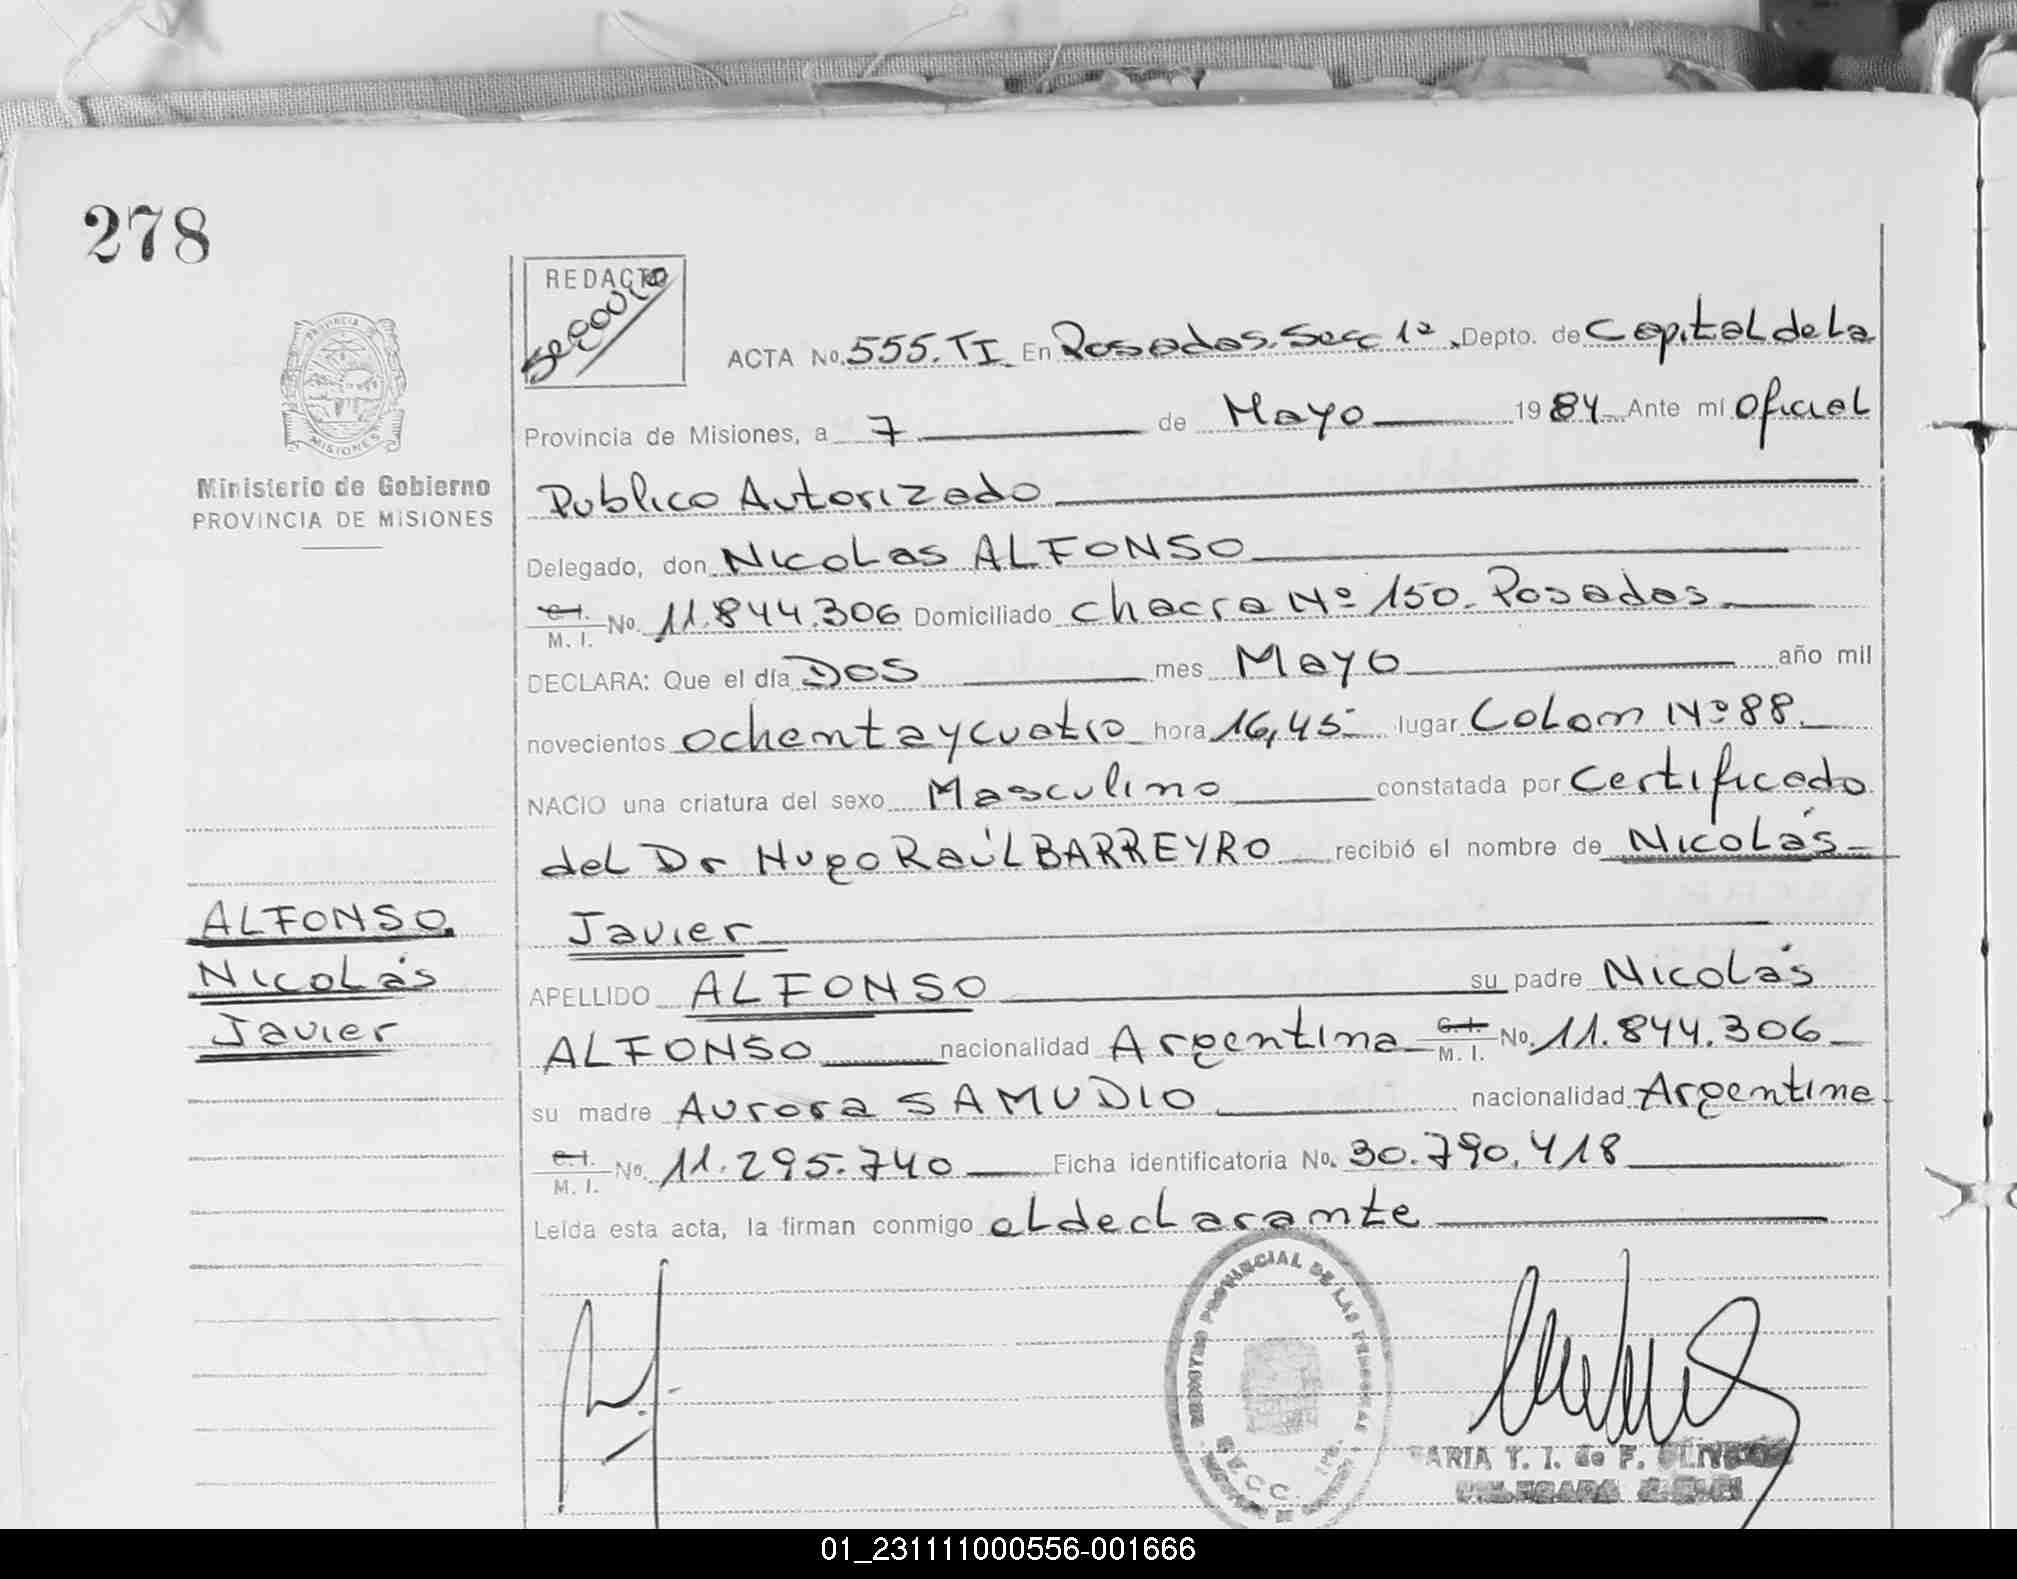 278
REDACTO
PROVINCIA DE
MISIONES
Ministerio de Gobierno
PROVINCIA DE MISIONES
ACTA No. 555.TI En Posadas. Secc 1ª. Depto. de Capital de La
Provincia de Misiones, a 7 de Mayo 1984 Ante mí Oficial
Publico Autorizado
Delegado, don NICOLAS ALFONSO
C.I. M. I. No. 11.844.306 Domiciliado Chacra Nº 150. Posadas
DECLARA: Que el día DOS mes MAYO año mil
novecientos ochenta y cuatro hora 16,45 lugar Colom Nº 88.
NACIO una criatura del sexo Masculino constatada por Certificado
del Dr Hugo Raúl BARREYRO recibió el nombre de NICOLás
Javier
ALFONSO
NICOLás
Javier
APELLIDO ALFONSO su padre NICOLás
ALFONSO nacionalidad Argentina C.I. M. I. No. 11.844.306
su madre Aurora SAMUDIO nacionalidad Argentina
C.I. M. I. No. 11.295.740 Ficha identificatoria No. 30.790.418
Leída esta acta, la firman conmigo el declarante
REGISTRO PROVINCIAL DE LAS PERSONAS
MARIA T. I. de F.
01_231111000556-001666